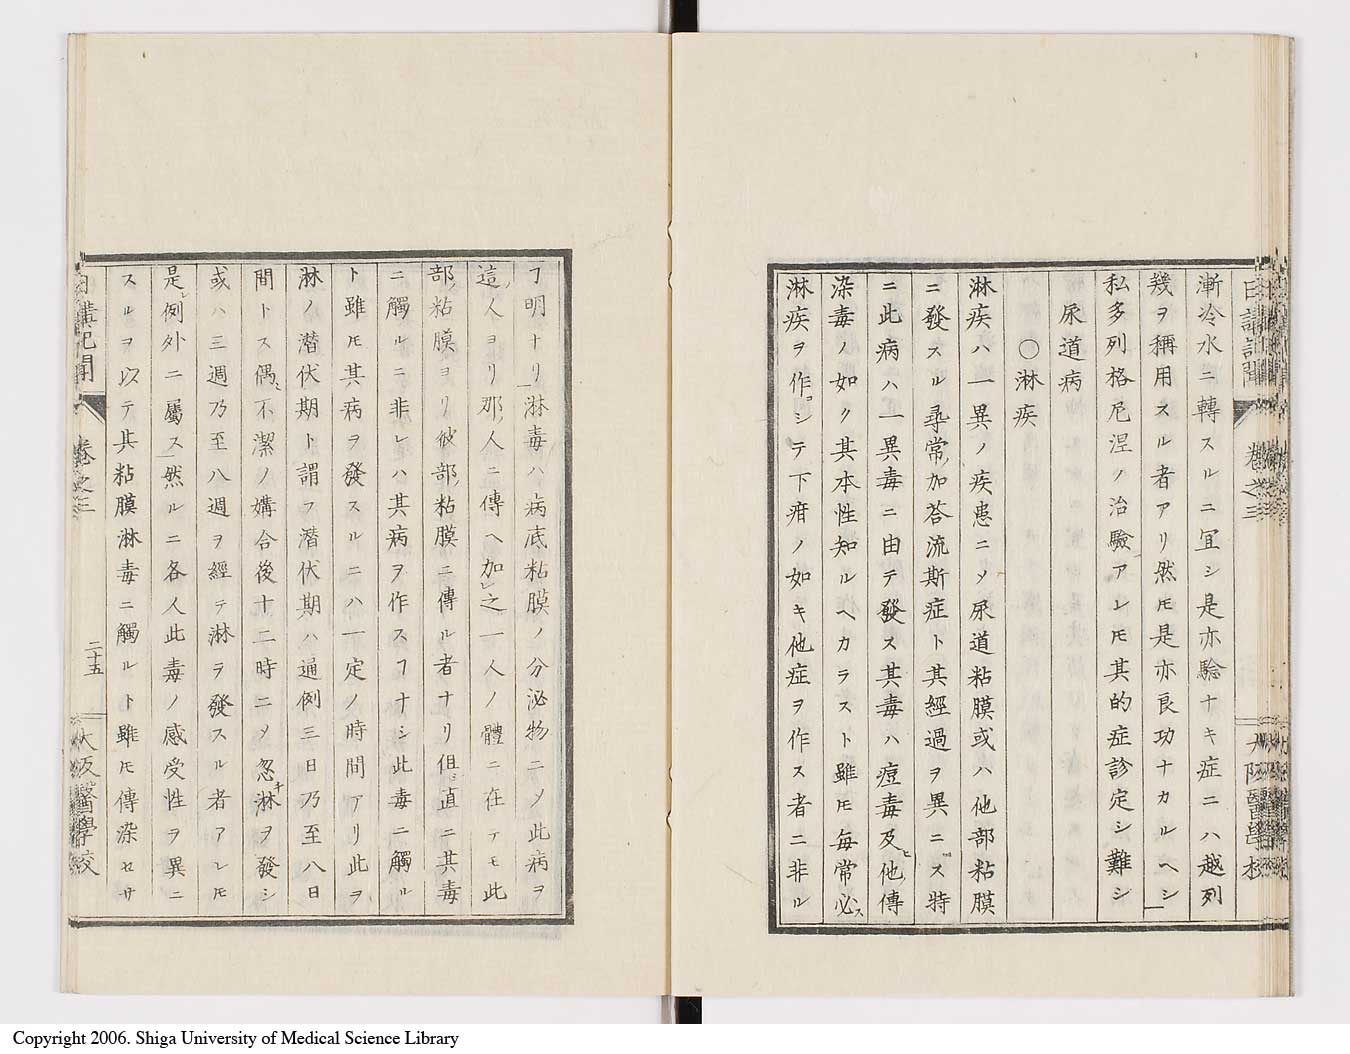 日講記聞
卷之三
大阪醫學校
漸冷水ニ轉スルニ宜シ是亦驗ナキ症ニハ越列
幾ヲ稱用スル者アリ然𪜈是亦良功ナカルヘシ
私多列格尼涅ノ治驗アレ𪜈其的症診定シ難シ
尿道病
〇淋疾
淋疾ハ一異ノ疾患ニ〆尿道粘膜或ハ他部粘膜
ニ發スル尋常ノ加荅流斯症ト其經過ヲ異ニス特
ニ此病ハ一異毒ニ由テ發ス其毒ハ痘毒及ヒ他ノ傳
染毒ノ如ク其本性知ルヘカラスト雖𪜈每常必ス
淋疾ヲ作コシテ下疳ノ如キ他症ヲ作ス者ニ非ル
ヿ明ナリ淋毒ハ病底粘膜ノ分泌物ニ〆此病ヲ
這ノ人ヨリ那ノ人ニ傳ヘ加レ之一人ノ體ニ在テモ此
部ノ粘膜ヨリ彼部ノ粘膜ニ傳ル者ナリ但シ直ニ其毒
ニ觸ルニ非レハ其病ヲ作スヿナシ此毒ニ觸ル
ト雖𪜈其病ヲ發スルニハ一定ノ時間アリ此ヲ
淋ノ潜伏期ト謂フ潜伏期ハ通例三日乃至八日
間トス偶ヒ不潔ノ媾合後十二時ニ〆忽チ淋ヲ發シ
或ハ三週乃至八週ヲ經テ淋ヲ發スル者アレ𪜈
是レ例外ニ屬ス然ルニ各人此毒ノ感受性ヲ異ニ
スルヲ以テ其粘膜淋毒ニ觸ルト雖𪜈傳染セサ
日講記聞
卷之三
二十五
大阪醫學校
Copyright 2006. Shiga University of Medical Science Library